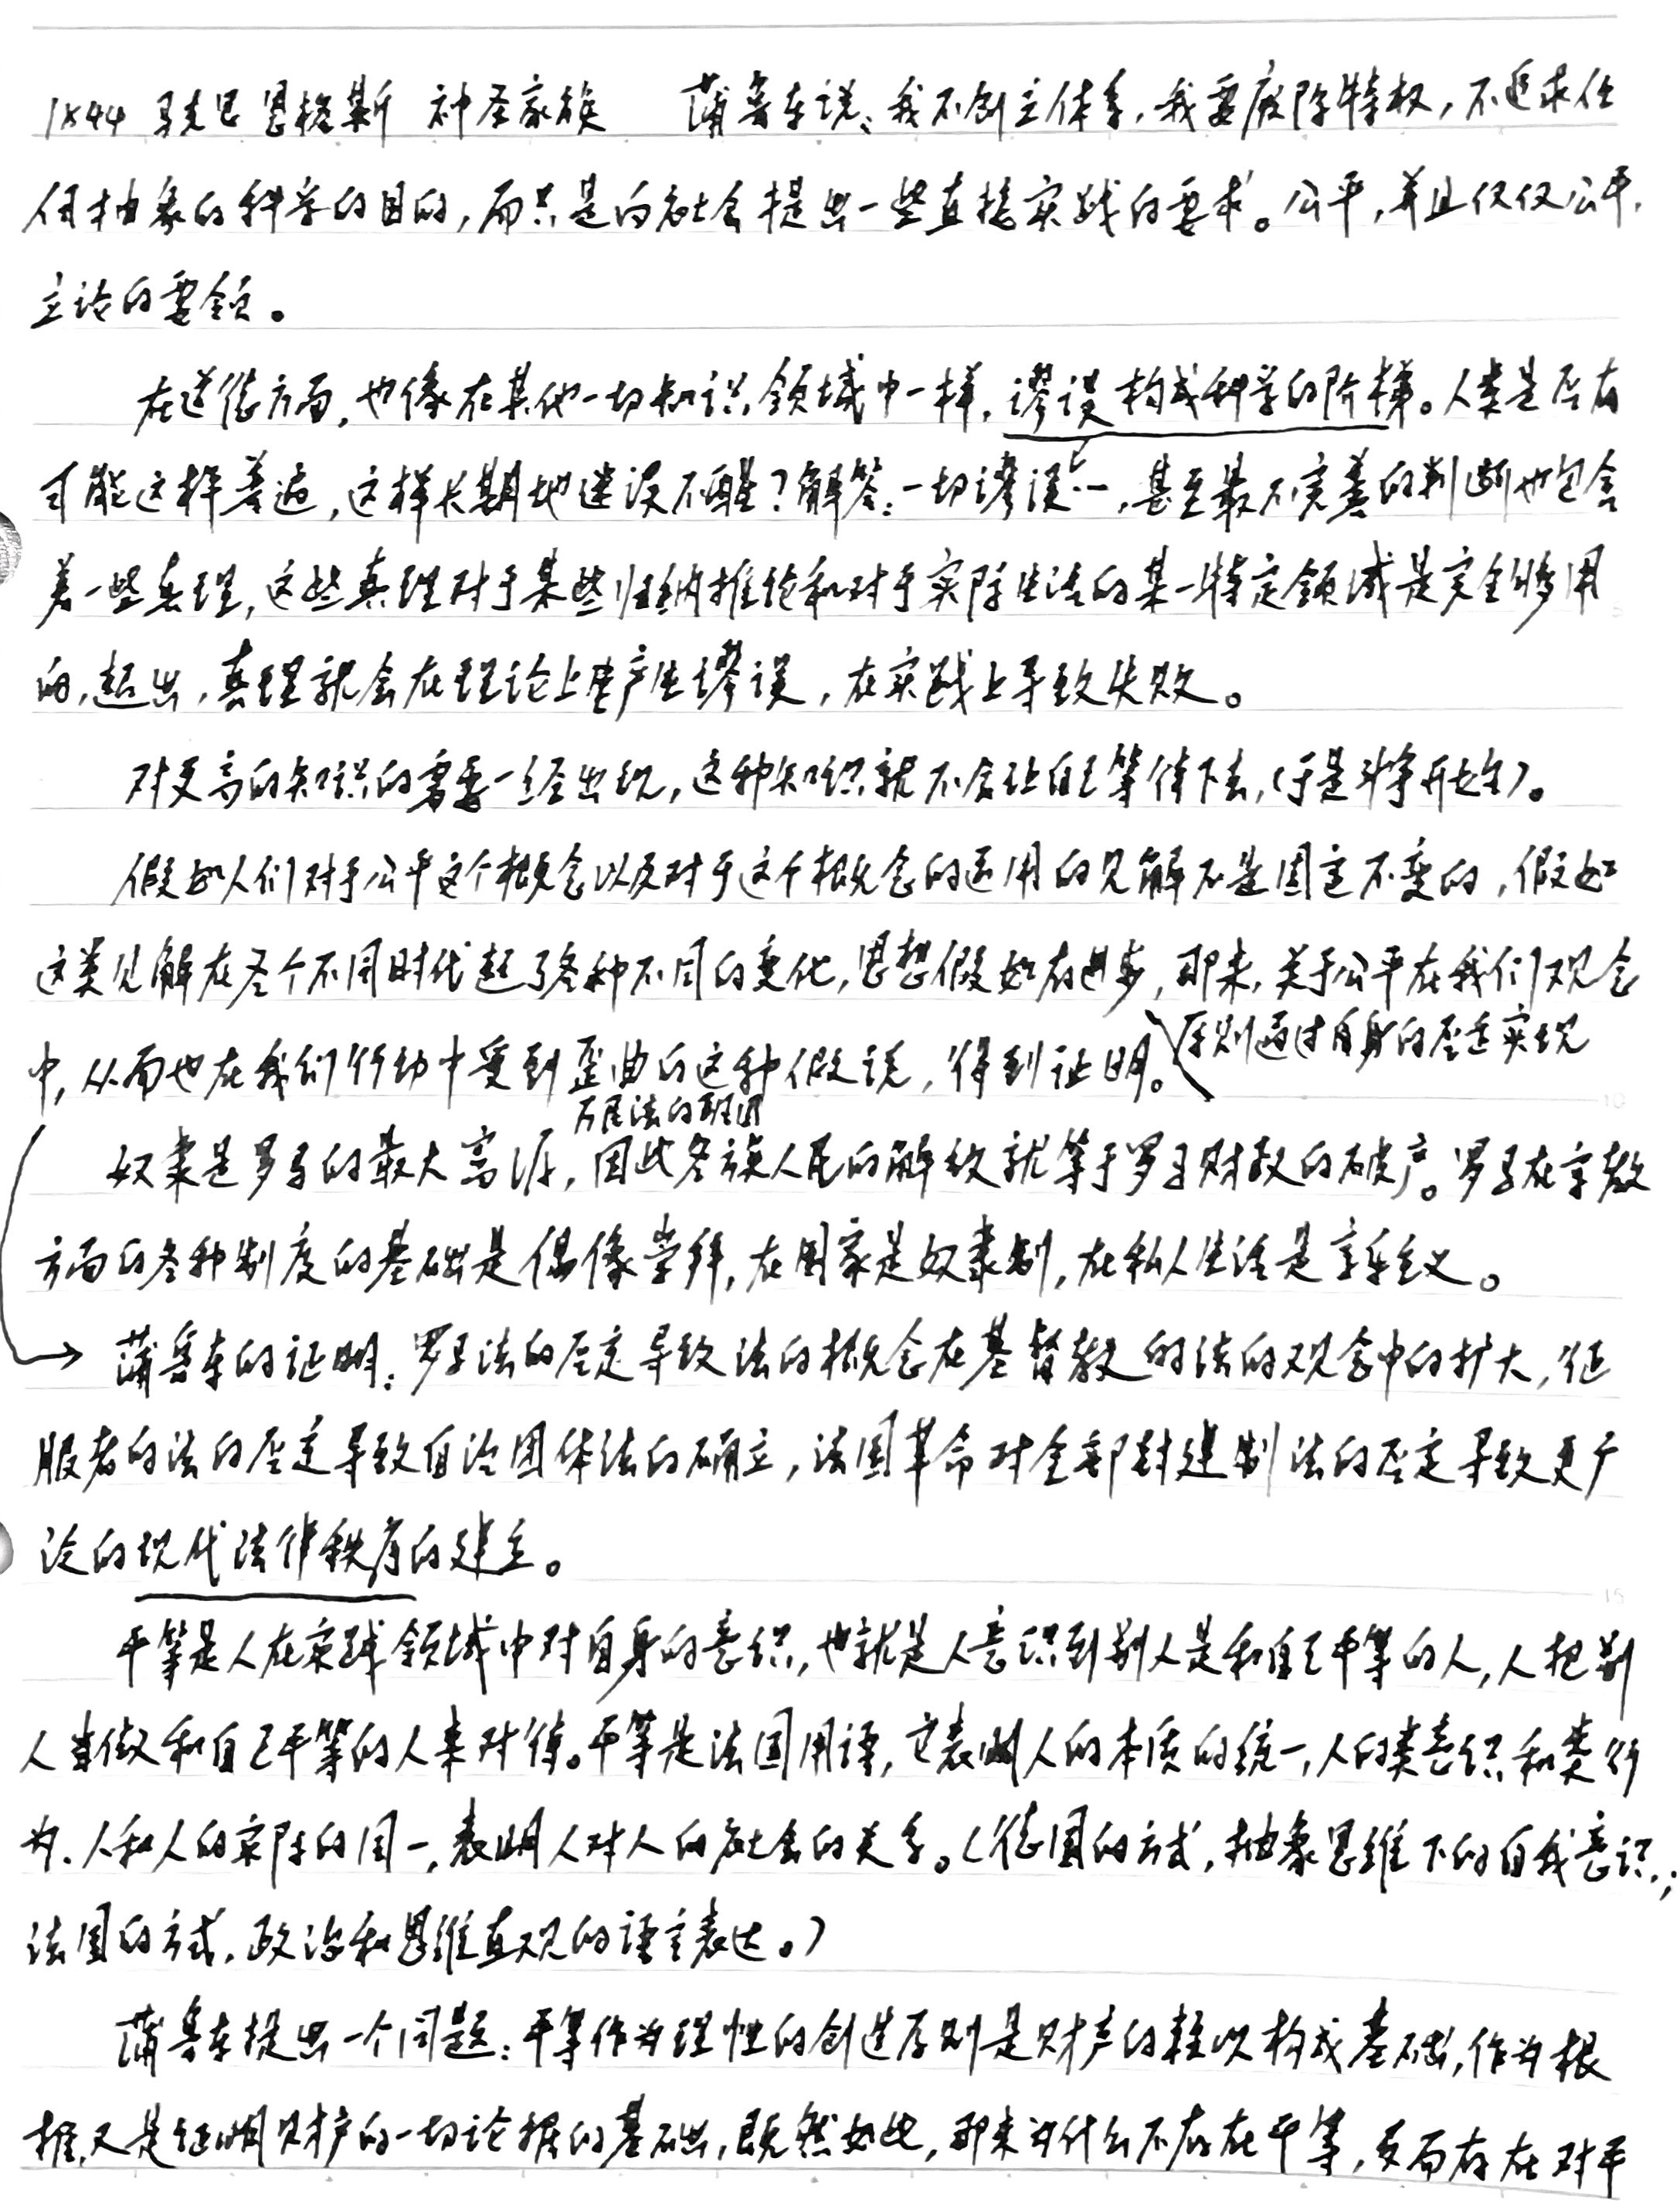 1844 马克思 恩格斯 神圣家族 蒲鲁东说：我不创立体系，我要废除特权，不追求任
何抽象的科学的目的，而只是向社会提出一些直接实践的要求。公平，并且仅仅公平，
立论的要领。
在道德方面，也像在其他一切知识领域中一样，谬误构成科学的阶梯。人类是否有
可能这样普遍，这样长期地迷误不醒？解答：一切谬误…，甚至最不完善的判断也包含
着一些真理，这些真理对于某些归纳推论和对于实际生活的某一特定领域是完全够用
的，超出，真理就会在理论上产生谬误，在实践上导致失败。
对更高的知识的需要一经出现，这种知识就不会让自己等待下去，（于是斗争开始）。
假如人们对于公平这个概念以及对于这个概念的运用的见解不是固定不变的，假如
这类见解在各个不同时代起了各种不同的变化，思想假如有进步，那末，关于公平在我们观念
中，从而也在我们行动中受到歪曲的这种假说，得到证明。原则通过自身的否定实现
万民法的承认
奴隶是罗马的最大富源，因此各族人民的解放就等于罗马财政的破产。罗马在宗教
方面的各种制度的基础是偶像崇拜，在国家是奴隶制，在私人生活是享乐主义。
→ 蒲鲁东的证明：罗马法的否定导致法的概念在基督教的法的观念中的扩大，征
服者的法的否定导致自治团体法的确立，法国革命对全部封建制法的否定导致更广
泛的现代法律秩序的建立。
平等是人在实践领域中对自身的意识，也就是人意识到别人是和自己平等的人，人把别
人当做和自己平等的人来对待。平等是法国用语，它表明人的本质的统一，人的类意识和类行
为，人和人的实际的同一，表明人对人的社会的关系。（德国的方式，抽象思维下的自我意识；
法国的方式，政治和思维直观的语言表达。）
蒲鲁东提出一个问题：平等作为理性的创造原则是财产的赖以构成基础，作为根
据，又是证明财产的一切论据的基础，既然如此，那末为什么不存在平等，反而存在对平